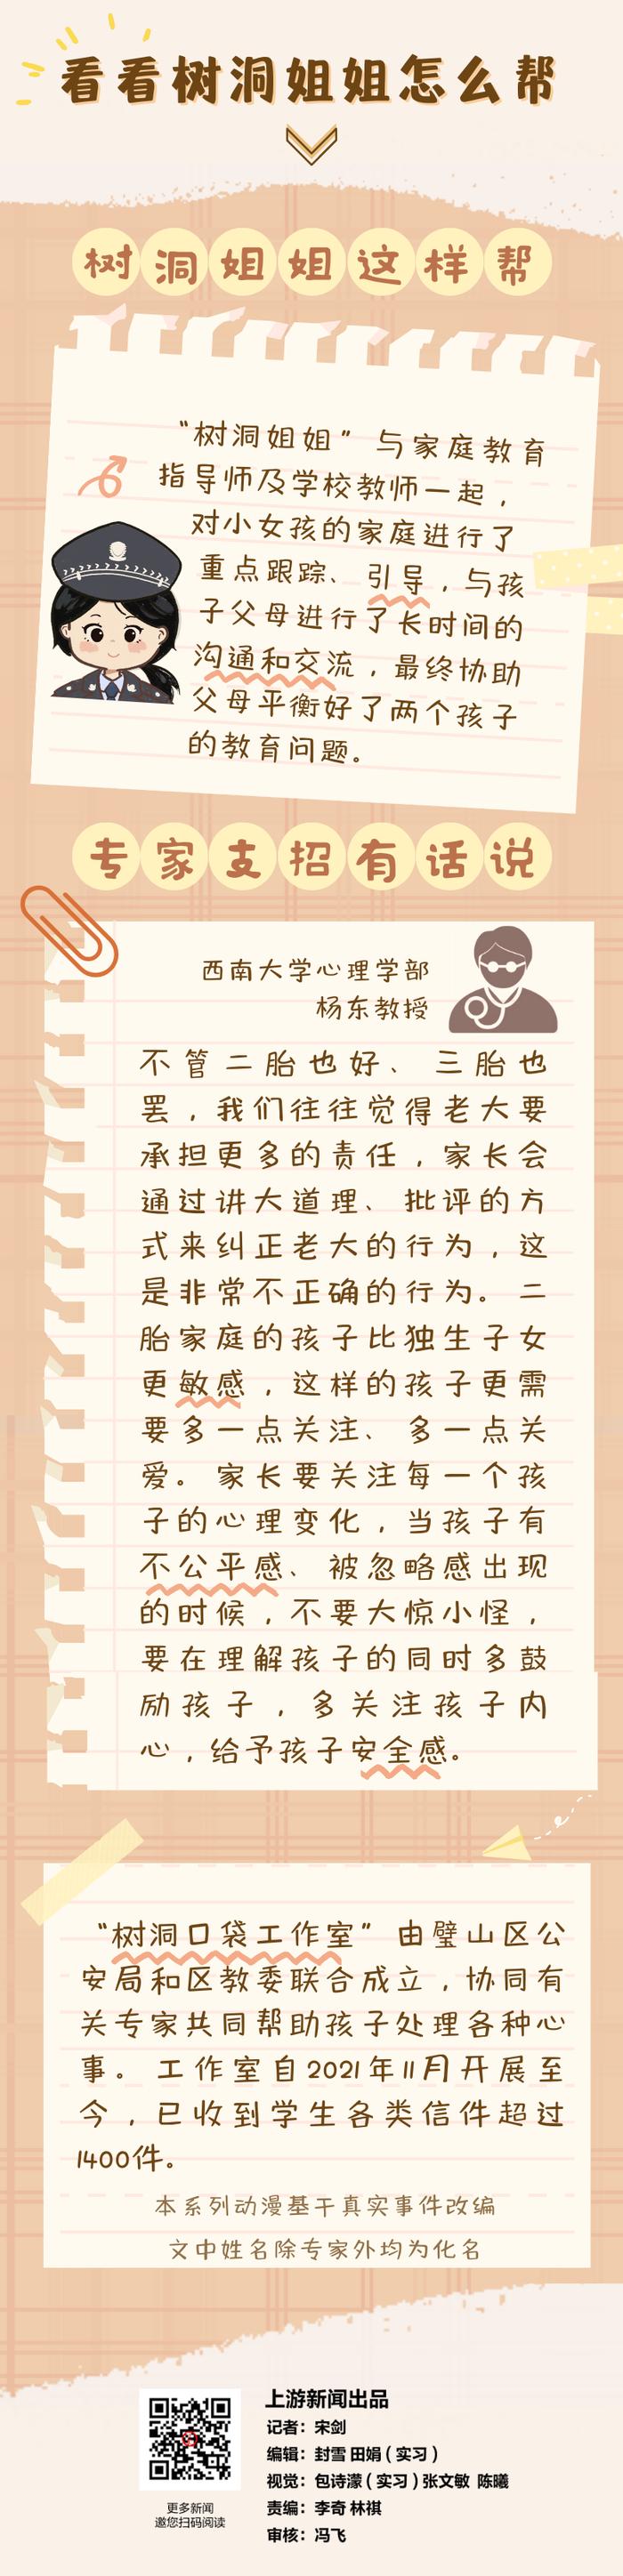 看看树洞姐姐怎么帮
树洞姐姐这样帮
“树洞姐姐”与家庭教育
指导师及学校教师一起，
对小女孩的家庭进行了
重点跟踪、引导，与孩
子父母进行了长时间的
沟通和交流，最终协助
父母平衡好了两个孩子
的教育问题。
专家支招有话说
西南大学心理学部
杨东教授
不管二胎也好、三胎也
罢，我们往往觉得老大要
承担更多的责任，家长会
通过讲大道理、批评的方
式来纠正老大的行为，这
是非常不正确的行为。二
胎家庭的孩子比独生子女
更敏感，这样的孩子更需
要多一点关注、多一点关
爱。家长要关注每一个孩
子的心理变化，当孩子有
不公平感、被忽略感出现
的时候，不要大惊小怪，
要在理解孩子的同时多鼓
励孩子，多关注孩子内
心，给予孩子安全感。
“树洞口袋工作室”由璧山区公
安局和区教委联合成立，协同有
关专家共同帮助孩子处理各种心
事。工作室自2021年11月开展至
今，已收到学生各类信件超过
1400件。
本系列动漫基于真实事件改编
文中姓名除专家外均为化名
上游新闻出品
记者：宋剑
编辑：封雪 田娟（实习）
视觉：包诗濛（实习）张文敏 陈曦
责编：李奇 林祺
审核：冯飞
更多新闻
邀您扫码阅读